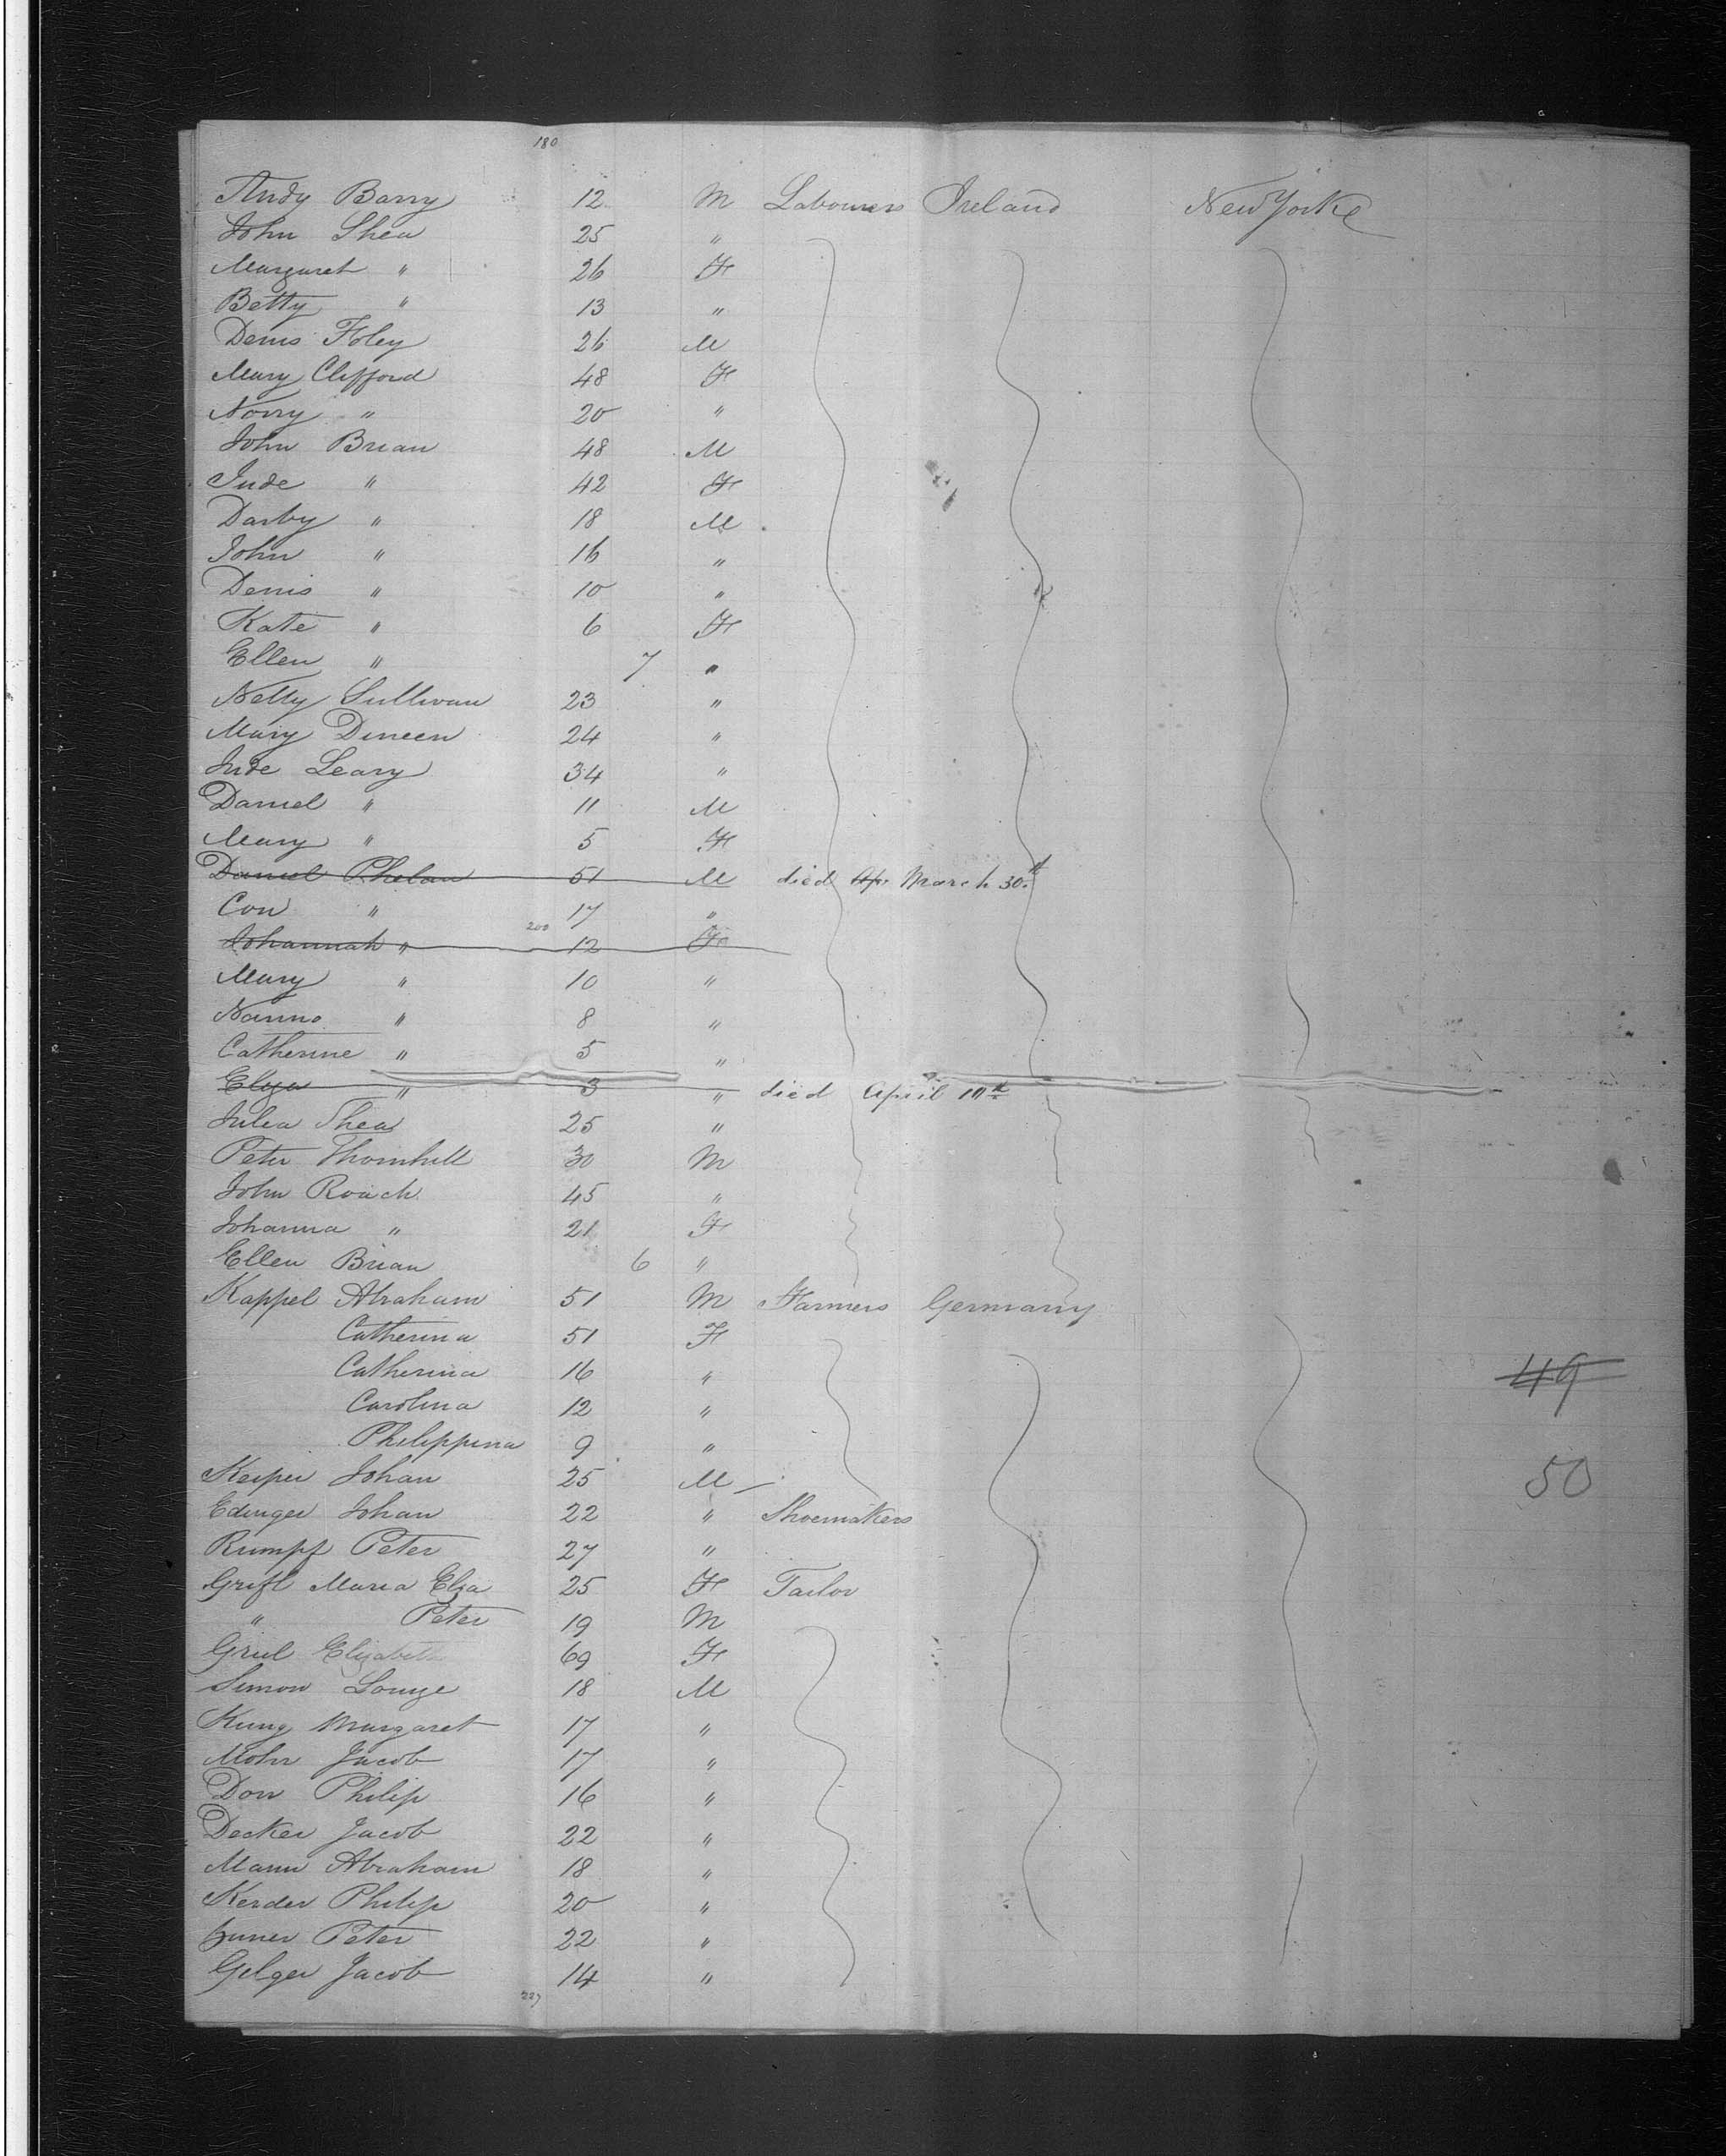 180
Andy Barry 12 M Labourers Ireland New Yorke
John Shea 25 "
Margaret " 26 F
Betty " 13 "
Denis Foley 26 M
Mary Clifford 48 F
Norry " 20 "
John Brian 48 M
Jude " 42 F
Darby " 18 M
John " 16 "
Denis " 10 "
Kate " 6 F
Ellen " 7 "
Nelly Sullivan 23 "
Mary Dineen 24 "
Jude Leary 34 "
Daniel " 11 M
Mary " 5 F
Daniel Phelan 51 M died Ap March 30th
Con " 17 "
200
Johannah " 12 F
Mary " 10 "
Nanno " 8 "
Catherine " 5 "
Eliza " 3 " died April 10th
Julia Shea 25 "
Peter Thornhill 30 M
John Roach 45 "
Johanna " 21 F
Ellen Brian 6 "
Kappel Abraham 51 M Farmers Germany
Catherina 51 F
Catherina 16 " 49
Carolina 12 "
Philippina 9 "
Keiper Johan 25 M 50
Edinger Johan 22 " Shoemakers
Rumpf Peter 27 "
Maria Elza 25 F Tailor
" Peter 19 M
Elizabeth 69 F
Simon 18 M
Kung Margaret 17 "
Mohr Jacob 17 "
Dorr Philip 16 "
Decker Jacob 22 "
Mann Abraham 18 "
Kerder Philip 20 "
Peter 22 "
Gelger Jacob 14 "
227